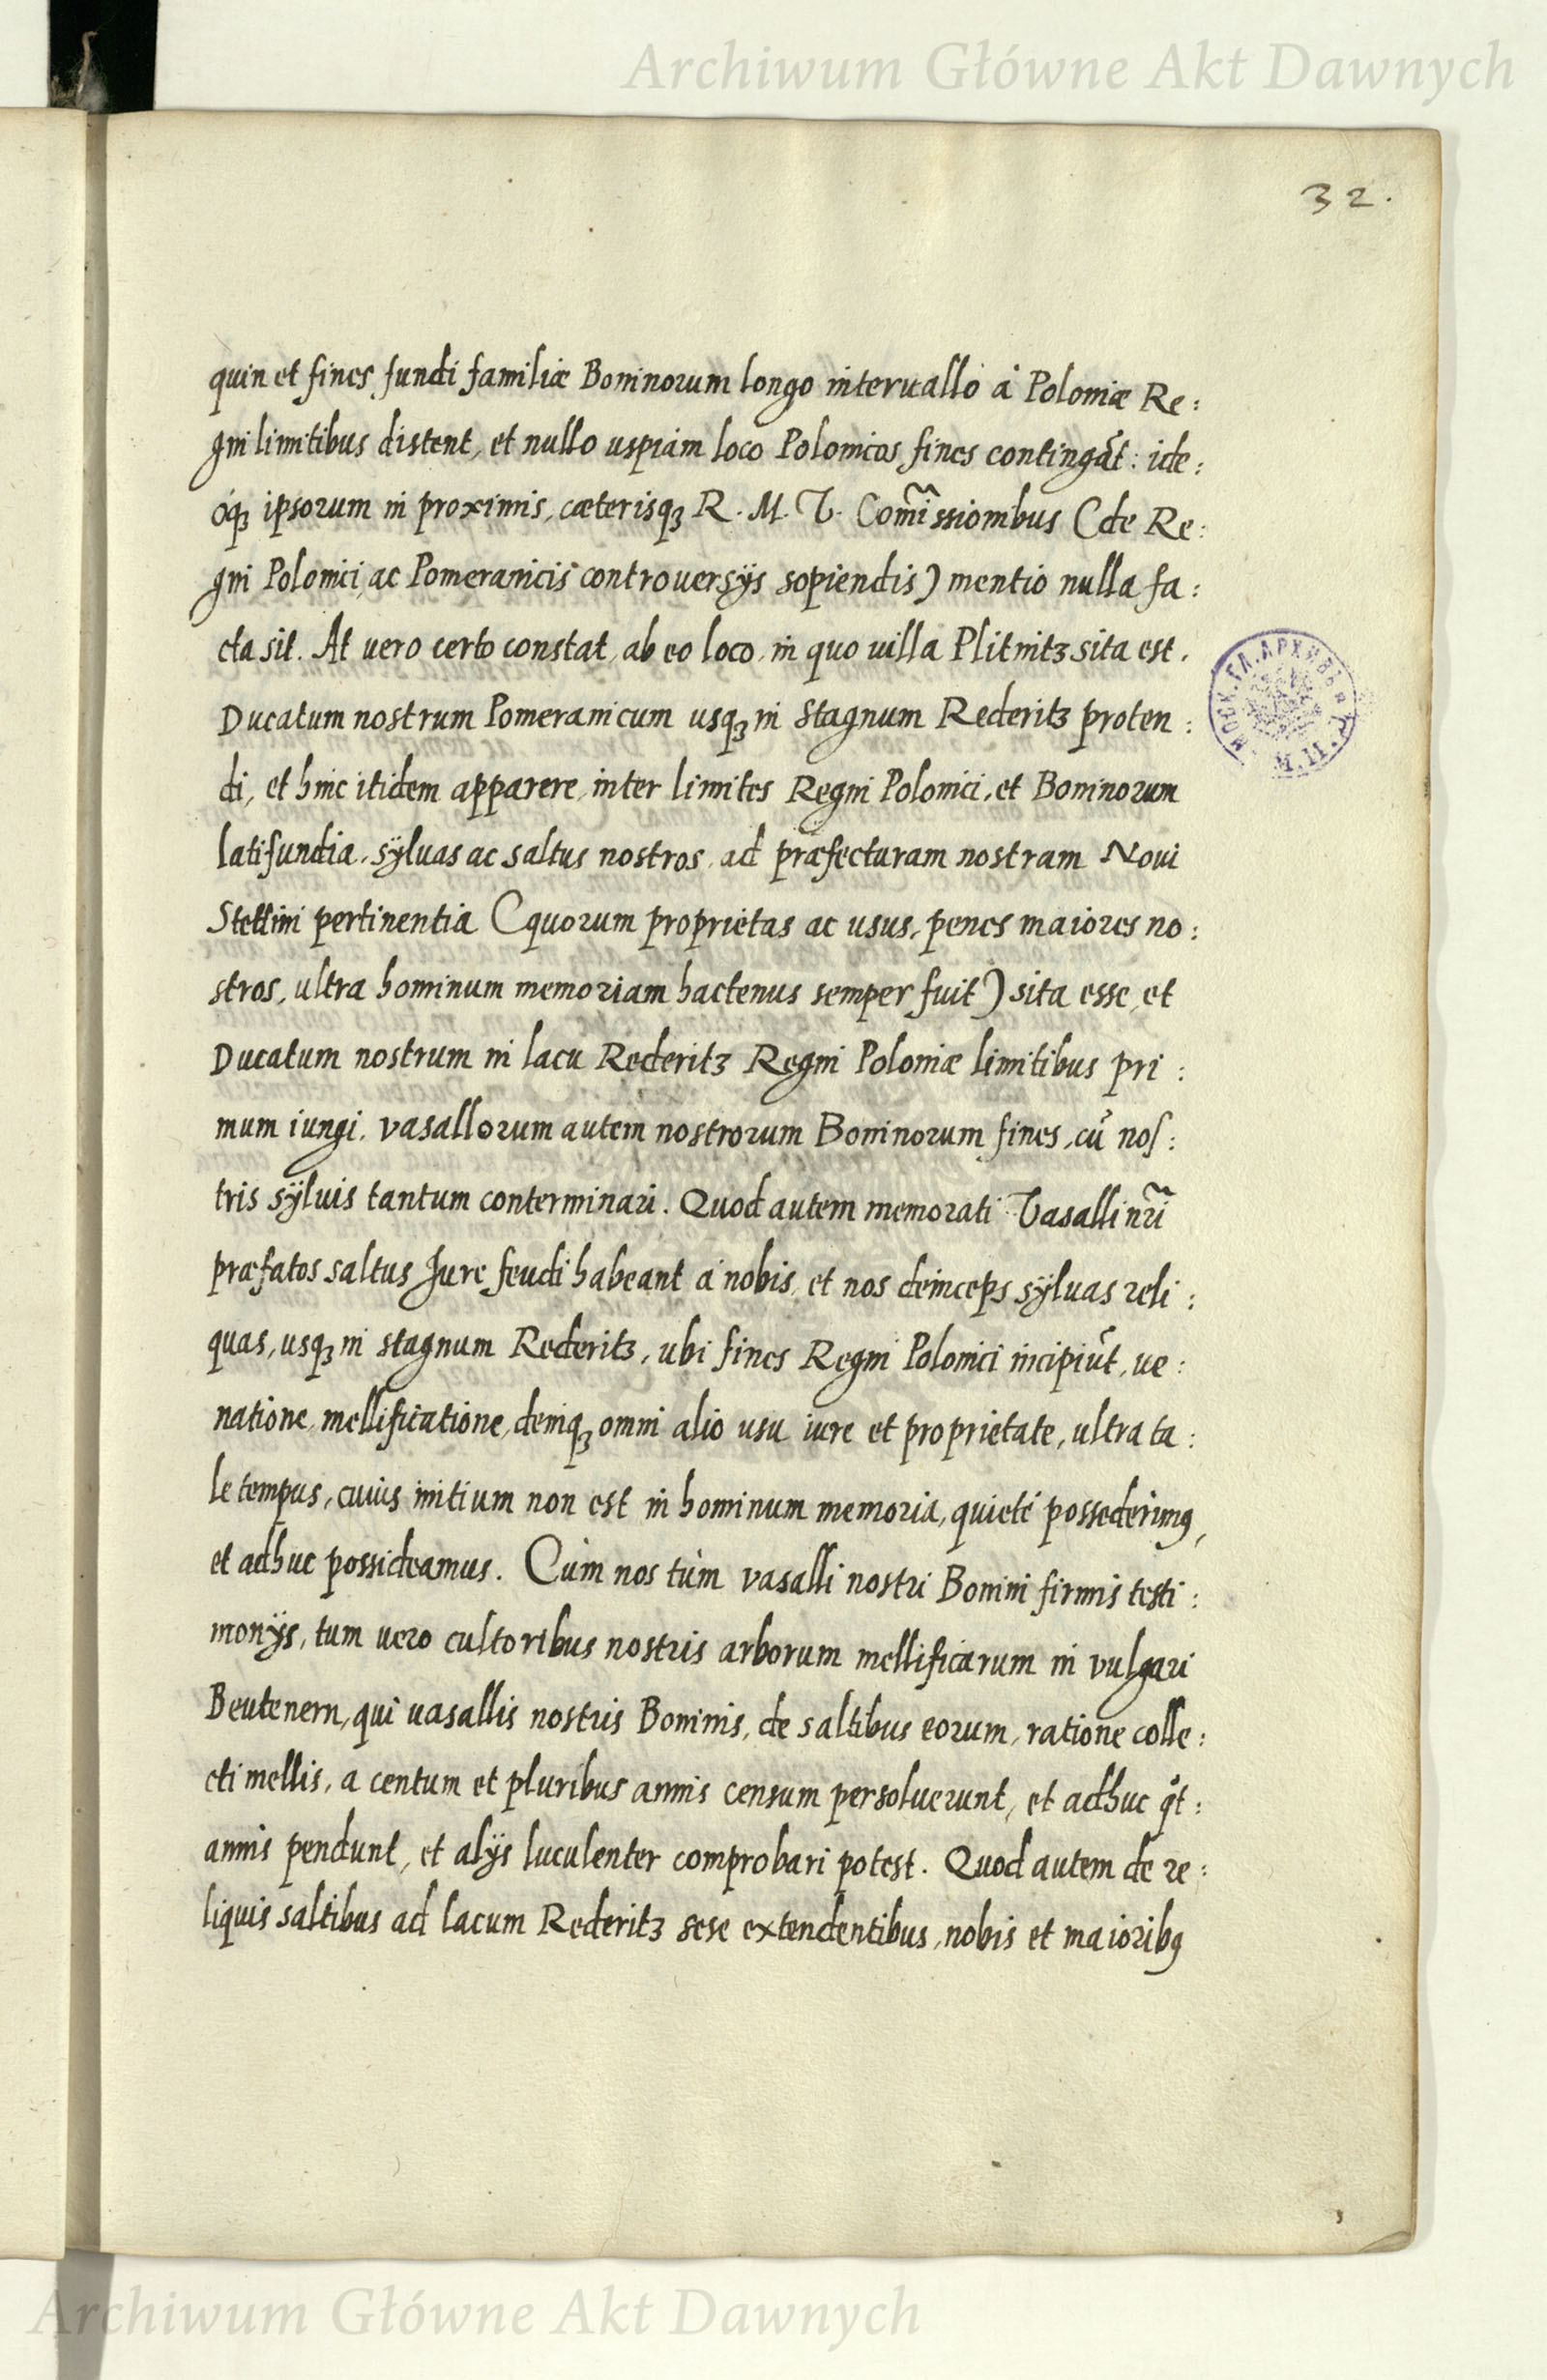 Archiwum Główne Akt Dawnych
32.
quin et fines fundi familiæ Boninorum longo interuallo à Poloniæ Re:
gni limitibus distent, et nullo uspiam loco Polonicos fines contingāt: ide:
óq; ipsorum in proximis, cæterisq; R. M. V. Com̃issionibus (de Re:
gni Polonici, ac Pomeranicis controuersÿs sopiendis) mentio nulla fa:
cta sit. At uero certo constat, ab eo loco, in quo uilla Plitnitz sita est,
Ducatum nostrum Pomeranicum usq; in stagnum Rederitz proten:
di, et hinc itidem apparere, inter limites Regni Polonici, et Boninorum
latifundia, sÿluas ac saltus nostros, ad præfecturam nostram Noui
Stettini pertinentia (quorum proprietas ac usus, penes maiores no:
stros, ultra hominum memoriam hactenus semper fuit) sita esse, et
Ducatum nostrum in lacu Rederitz Regni Poloniæ limitibus pri:
mum iungi. vasallorum autem nostrorum Boninorum fines, cū nos:
tris sÿluis tantum conterminari. Quod autem memorati Vasalli nr̃i
præfatos saltus Jure feudi habeant à nobis, et nos deinceps sÿluas reli:
quas, usq; in stagnum Rederitz, ubi fines Regni Polonici incipiūt, ue:
natione, mellificatione, deniq; omni alio usu iure et proprietate, ultra ta:
le tempus, cuius initium non est in hominum memoria, quietè possederimus,
et adhuc possideamus. Cùm nos tùm vasalli nostri Bonini firmis testi:
monÿs, tum uero cultoribus nostris arborum mellificarum in vulgari
Beutenern, qui uasallis nostris Boninis, de saltibus eorum, ratione colle:
cti mellis, a centum et pluribus annis censum persoluerunt, et adhuc qt:
annis pendunt, et alÿs luculenter comprobari potest. Quod autem de re:
liquis saltibus ad lacum Rederitz sese extendentibus, nobis et maioribus
МОСК. ГЛ. АРХИВЪ
Archiwum Główne Akt Dawnych